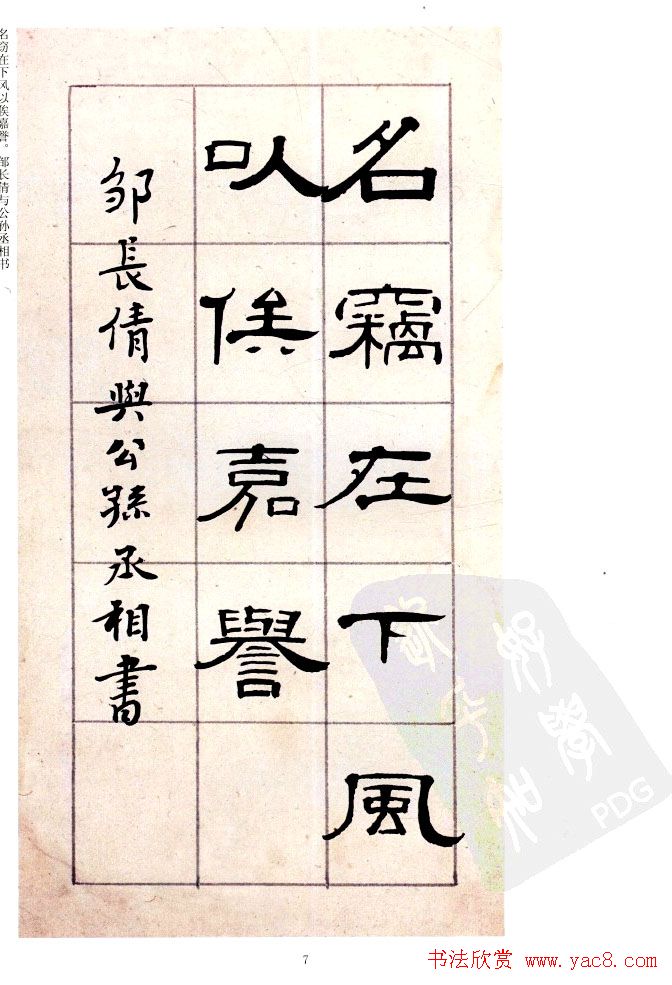 名竊在下風
以俟嘉譽
邹長倩與公孫丞相書
名窃在下风以俟嘉誉。 邹长倩与公孙丞相书
PDG
7
书法欣赏 www.yac8.com